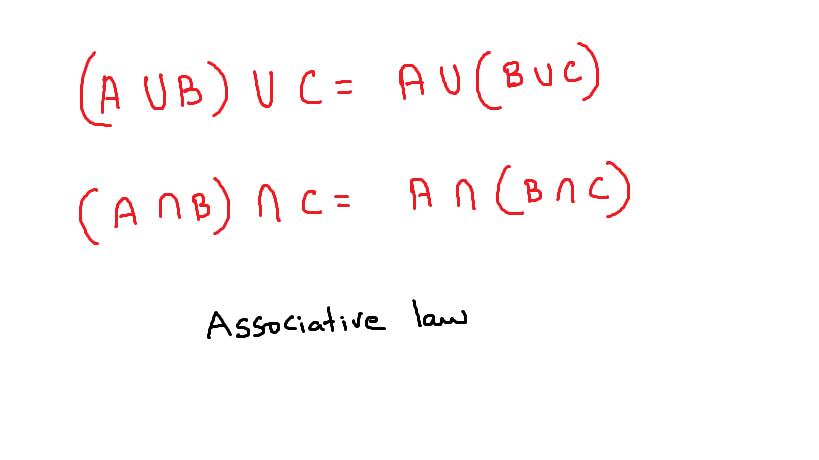 (A ∪ B) ∪ C = A ∪ (B ∪ C)
(A ∩ B) ∩ C = A ∩ (B ∩ C)
Associative law